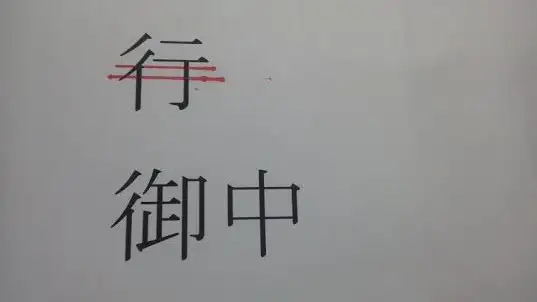 行
御中